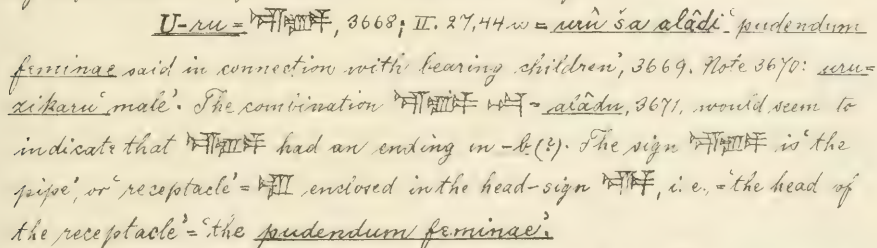 U-ru = , 3668; II. 27,44 w = urû ša alâdi 'pudendum
feminae said in connection with bearing children', 3669. Note 3670: uru =
zikaru 'male'. The combination = alâdu, 3671, would seem to
indicate that had an ending in -b (?). The sign is 'the
pipe', or 'receptacle' = enclosed in the head-sign , i. e., = 'the head of
the receptacle' = 'the pudendum feminae'.